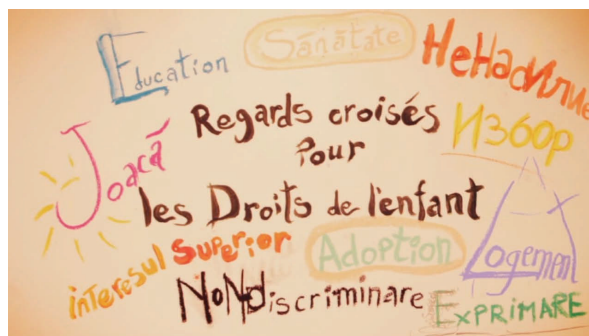 Education
Sănătate
НеНасилие
Избор
Joacă
Regards croisés
Pour
les Droits de l'enfant
Logement
interesul Superior
Adoption
NoNDiscriminare
EXPRIMARE